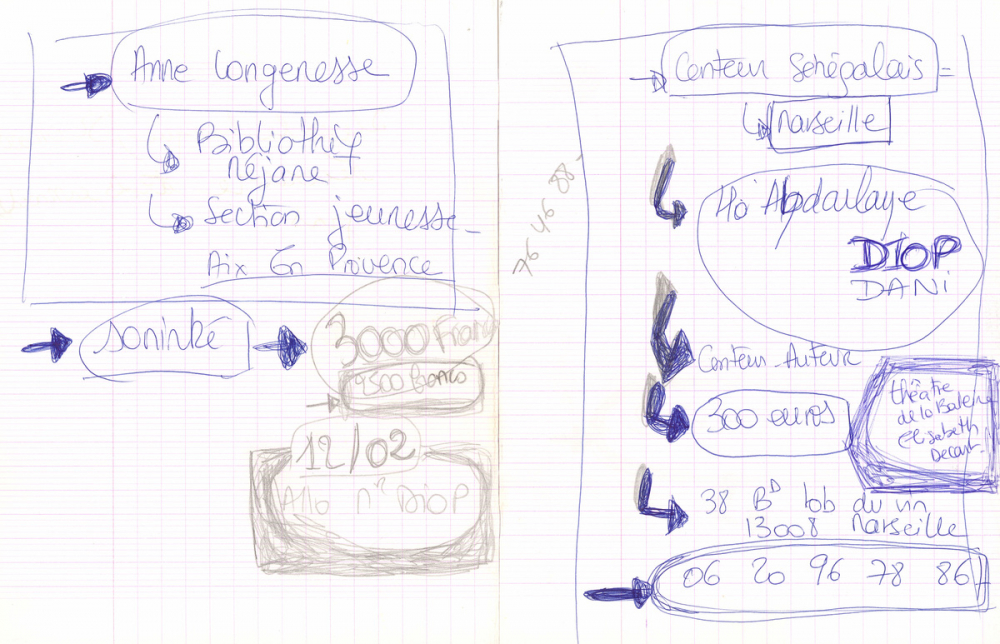 Anne Longenesse
Bibliothèq
Méjane
Section jeunesse
Aix En Provence
soninké
3000 Francs
2500 Francs
12/02
Allo Mr DIOP
76 46 88
Conteur Sénégalais =
Marseille
DIOP
DANI
Conteur-Auteur
300 euros
théâtre
de la Baleine
Elisabeth
38 BD
13008 Marseille
06 20 96 78 86